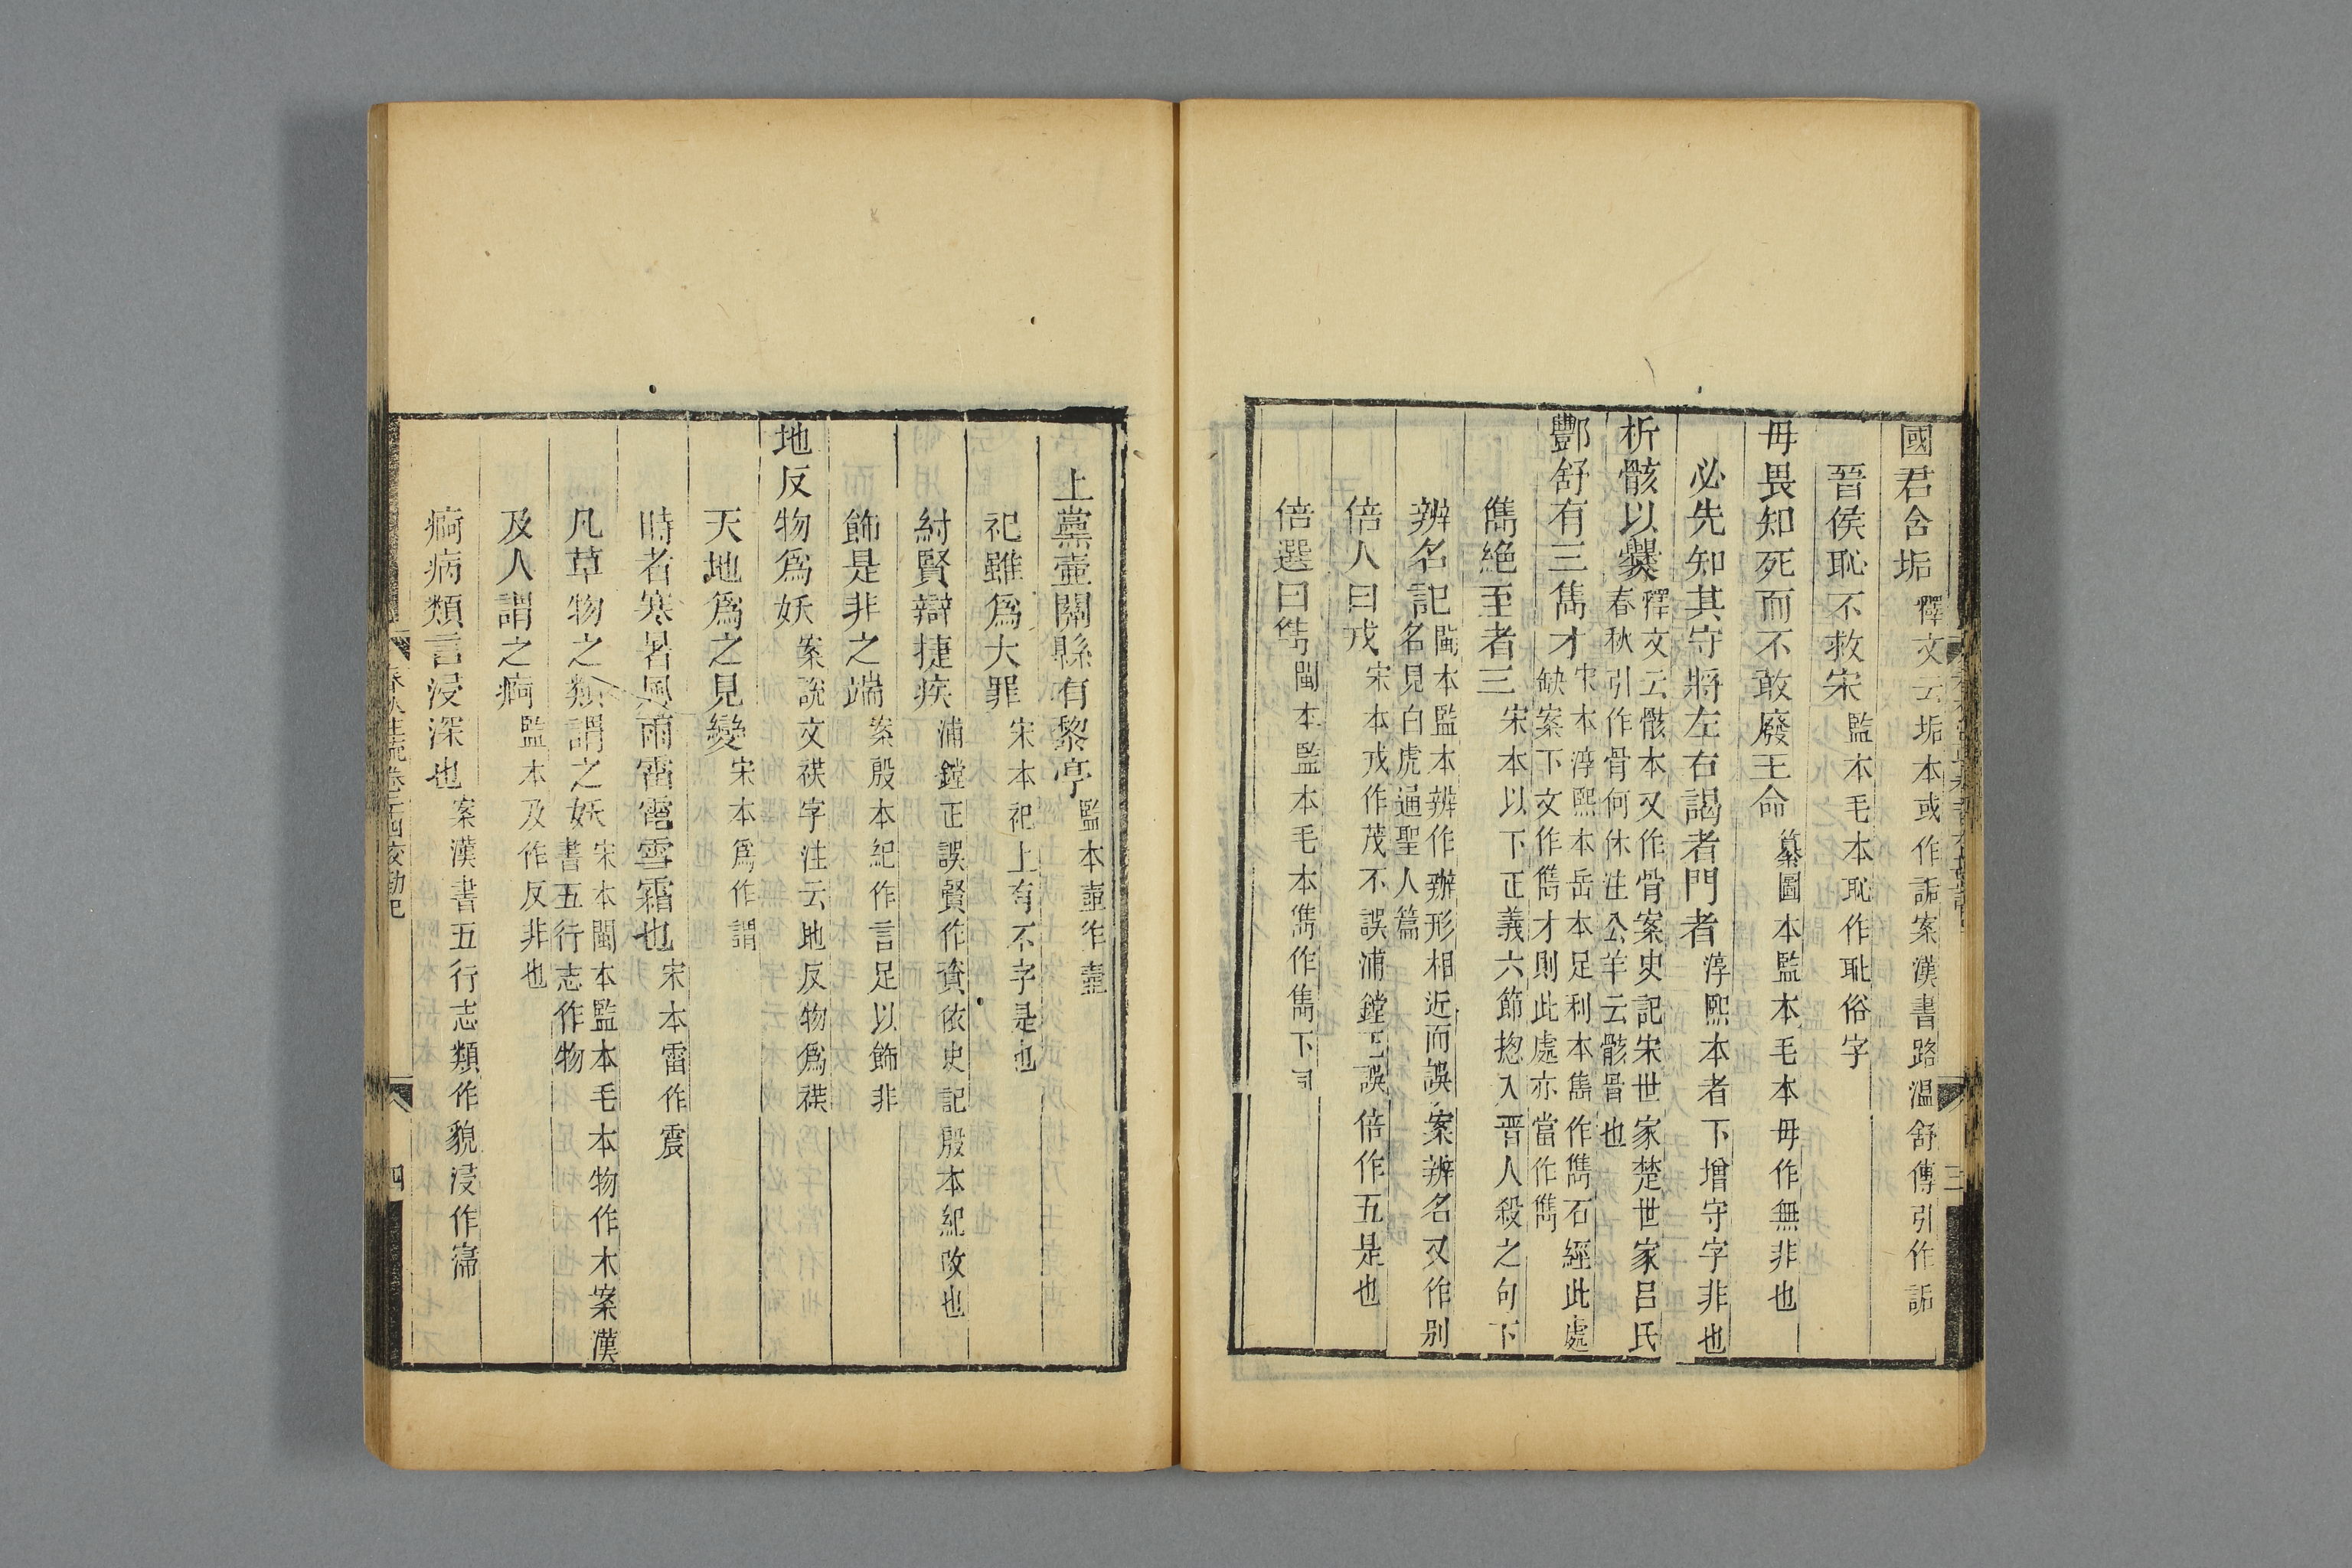 國君含垢釋文云垢本或作詬案漢書路溫舒傳引作詬
晉侯恥不救宋監本毛本恥作耻俗字
毋畏知死而不敢廢王命纂圖本監本毛本毋作無非也
必先知其守將左右謁者門者淳熙本者下增守字非也
析骸以爨釋文云骸本又作骨案史記宋世家楚世家呂氏春秋引作骨何休注公羊云骸骨也
酆舒有三雋才宋本淳熙本岳本足利本雋作儁石經此處缺案下文作儁才則此處亦當作儁
儁絕至者三宋本以下正義六節揔入晉人殺之句下
辨名記閩本監本辨作辦形相近而誤案辨名又作别名見白虎通聖人篇
倍人曰戎宋本戎作茂不誤浦鏜正誤倍作五是也
倍選曰儁閩本監本毛本儁作雋下同
上黨壼關縣有黎亭監本壼作壺
祀雖爲大罪宋本祀上有不字是也
紂賢辯捷疾浦鏜正誤賢作資依史記殷本紀改也
飾是非之端案殷本紀作言足以飾非
地反物爲妖案說文䄏字注云地反物爲䄏
天地爲之見變宋本爲作謂
時者寒暑風雨雷電雪霜也宋本雷作震
凡草物之類謂之妖宋本閩本監本毛本物作木案漢書五行志作物
及人謂之痾監本及作反非也
痾病類言浸深也案漢書五行志類作貌浸作寖
春秋注疏卷二十四校勘記
四
三